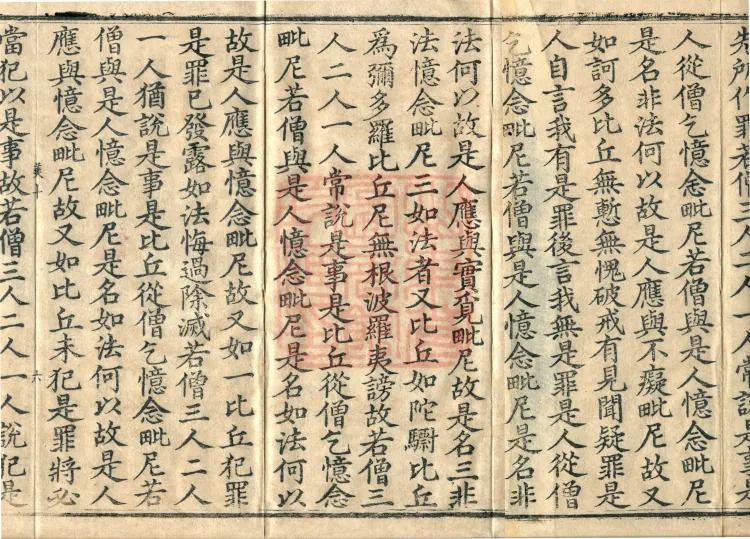 先所作罪若僧三人二人一人常說是事是
人從僧乞憶念毗尼若僧與是人憶念毗尼
是名非法何以故是人應與不癡毗尼故又
如訶多比丘無慙無愧破戒有見聞疑罪是
人自言我有是罪後言我無是罪是人從僧
乞憶念毗尼若僧與是人憶念毗尼是名非
法何以故是人應與實覓毗尼故是名三非
法憶念毗尼三如法者又比丘如陀驃比丘
為彌多羅比丘尼無根波羅夷謗故若僧三
人二人一人常說是事是比丘從僧乞憶念
毗尼若僧與是人憶念毗尼是名如法何以
故是人應與憶念毗尼故又如一比丘犯罪
是罪已發露如法悔過除滅若僧三人二人
一人猶說是事是比丘從僧乞憶念毗尼若
僧與是人憶念毗尼是名如法何以故是人
應與憶念毗尼故又如比丘未犯是罪將必
六
當犯以是事故若僧三人二人一人說犯是